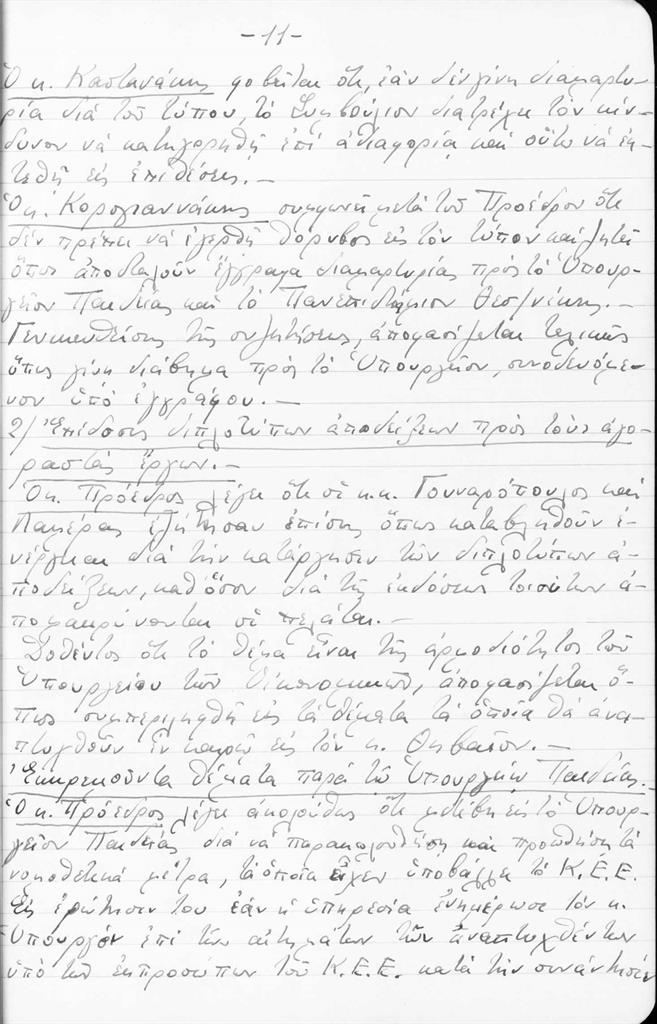 -11-
Ὁ κ. Καστανάκης φοβεῖται ὅτι, ἐάν δέν γίνῃ διαμαρτυ-
ρία διά τοῦ τύπου, τό Συμβούλιον διατρέχει τόν κίν-
δυνον νά κατηγορηθῇ ἐπί ἀδιαφορίᾳ καί οὕτω νά ἐκ-
τεθῇ εἰς ἐπιθέσεις.-
Ὁ κ. Κορογιαννάκης συμφωνεῖ μετά τοῦ Προέδρου ὅτι
δέν πρέπει νά ἐγερθῇ θόρυβος εἰς τόν τύπον καί ζητεῖ
ὅπως ἀποσταλοῦν ἔγγραφα διαμαρτυρίας πρός τό Ὑπουρ-
γεῖον Παιδείας καί τό Πανεπιστήμιον Θεσ/νίκης.-
Γενικευθείσης τῆς συζητήσεως, ἀποφασίζεται τελικῶς
ὅπως γίνῃ διάβημα πρός τό Ὑπουργεῖον, συνοδευόμε-
νον ὑπό ἐγγράφου.-
2/ Ἐπίδοσις διπλοτύπων ἀποδείξεων πρός τούς ἀγο-
ραστάς ἔργων.-
Ὁ κ. Πρόεδρος λέγει ὅτι οἱ κ.κ. Γουναρόπουλος καί
ἐζήτησαν ἐπίσης ὅπως καταβληθοῦν ἐ-
νέργειαι διά τήν κατάργησιν τῶν διπλοτύπων ἀ-
ποδείξεων, καθ' ὅσον διά τῆς ἐκδόσεως τοιούτων ἀ-
πομακρύνονται οἱ πελάται.-
Δοθέντος ὅτι τό θέμα εἶναι τῆς ἁρμοδιότητος τοῦ
Ὑπουργείου τῶν Οἰκονομικῶν, ἀποφασίζεται ὅ-
πως συμπεριληφθῇ εἰς τά θέματα τά ὁποῖα θά ἀνα-
πτυχθοῦν ἐν καιρῷ εἰς τόν κ. Θηβαῖον.-
Ἐκκρεμοῦντα θέματα παρά τῷ Ὑπουργείῳ Παιδείας.
Ὁ κ. Πρόεδρος λέγει ἀκολούθως ὅτι μετέβη εἰς τό Ὑπουρ-
γεῖον Παιδείας διά νά παρακολουθήσῃ καί προωθήσῃ τά
νομοθετικά μέτρα, τά ὁποῖα εἶχεν ὑποβάλλει τό Κ.Ε.Ε.
Εἰς ἐρώτησίν του ἐάν ἡ ὑπηρεσία ἐνημέρωσε τόν κ.
Ὑπουργόν ἐπί τῶν αἰτημάτων τῶν ἀναπτυχθέντων
ὑπό τῶν ἐκπροσώπων τοῦ Κ.Ε.Ε. κατά τήν συνάντησιν